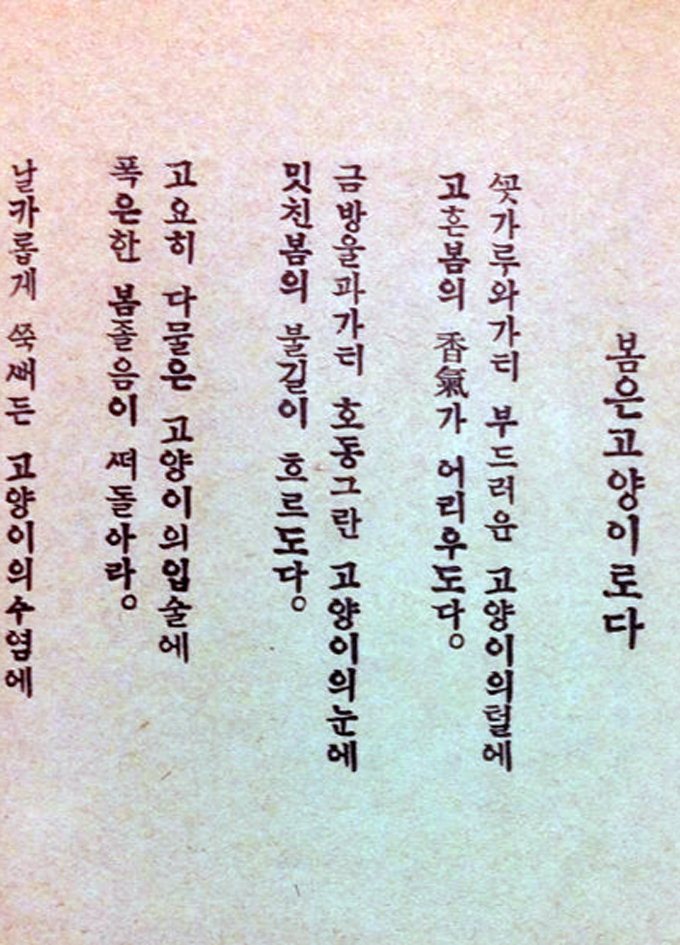 봄은고양이로다
ᄭᅩᆺ가루와가티 부드러운 고양이의털에
고흔봄의 香氣가 어리우도다。
금방울과가티 호동그란 고양이의눈에
밋친봄의 불길이 흐르도다。
고요히 다물은 고양이의입술에
폭은한 봄졸음이 ᄯᅥ돌아라。
날카롭게 ᄶᅮᆨᄲᅢ든 고양이의수염에